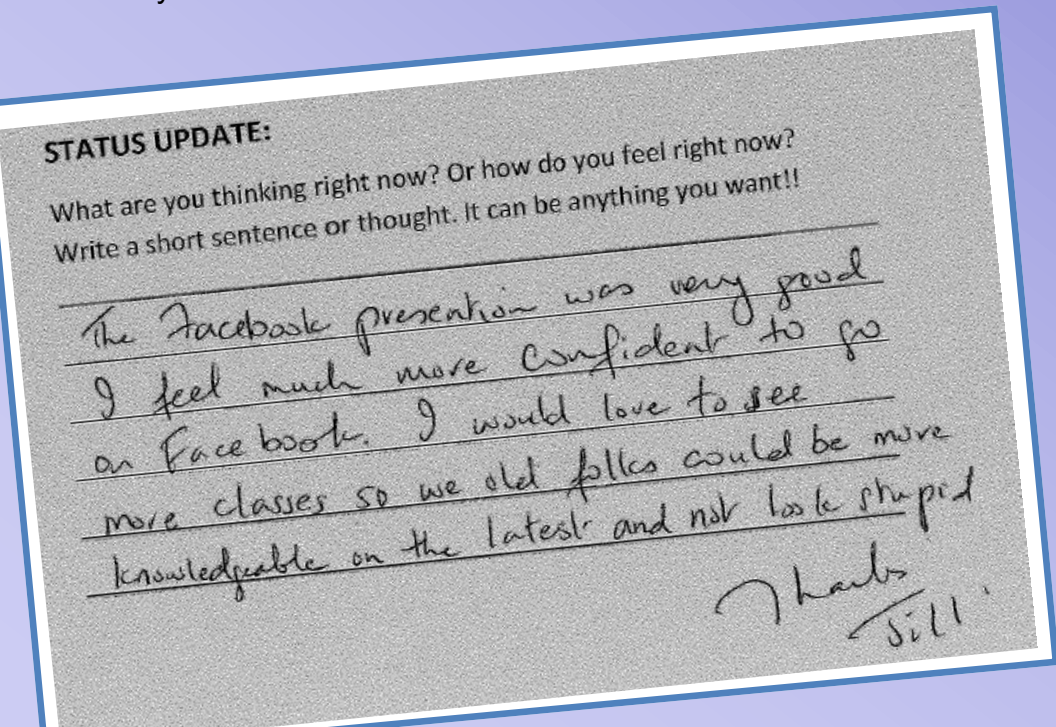 STATUS UPDATE:
What are you thinking right now? Or how do you feel right now?
Write a short sentence or thought. It can be anything you want!!
The Facebook presention was very good
I feel much more confident to go
on Facebook. I would love to see
more classes so we old folks could be more
knowledgeable on the latest and not look stupid
Thanks
Jill